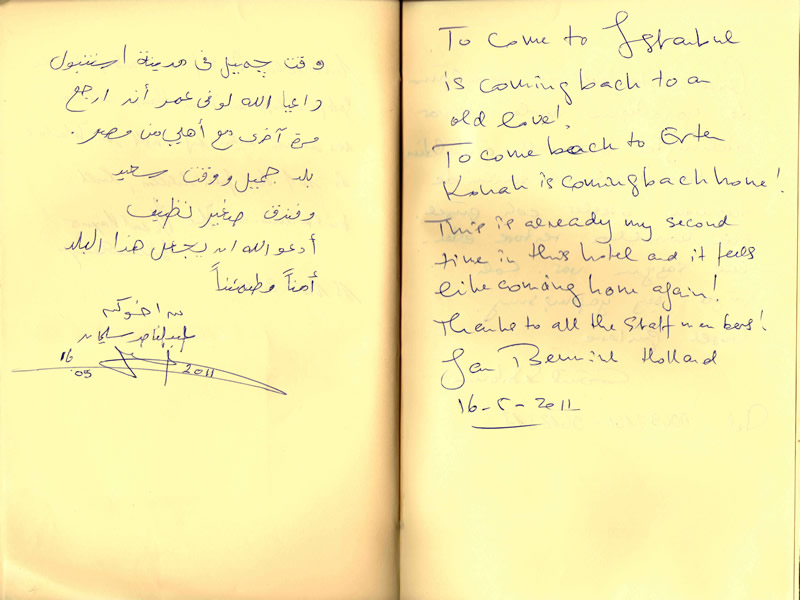 وقت جميل فى مدينة استنبول
داعيا الله لو فى عمر أن ارجع
مرة آخرى مع أهلي من مصر .
بلد جميل ووقت سعيد
وفندق صغير نظيف
أدعو الله ان يجعل هذا البلد
أمناً وطمئناً
من اخوكم
عبد الناصر سليمان
16
05 2011
To come to Istanbul
is coming back to an
old love!
To come back to Erten
Konak is coming back home!
This is already my second
time in this hotel and it feels
like coming home again!
Thanks to all the staff members!
Jan Holland
16-5-2011